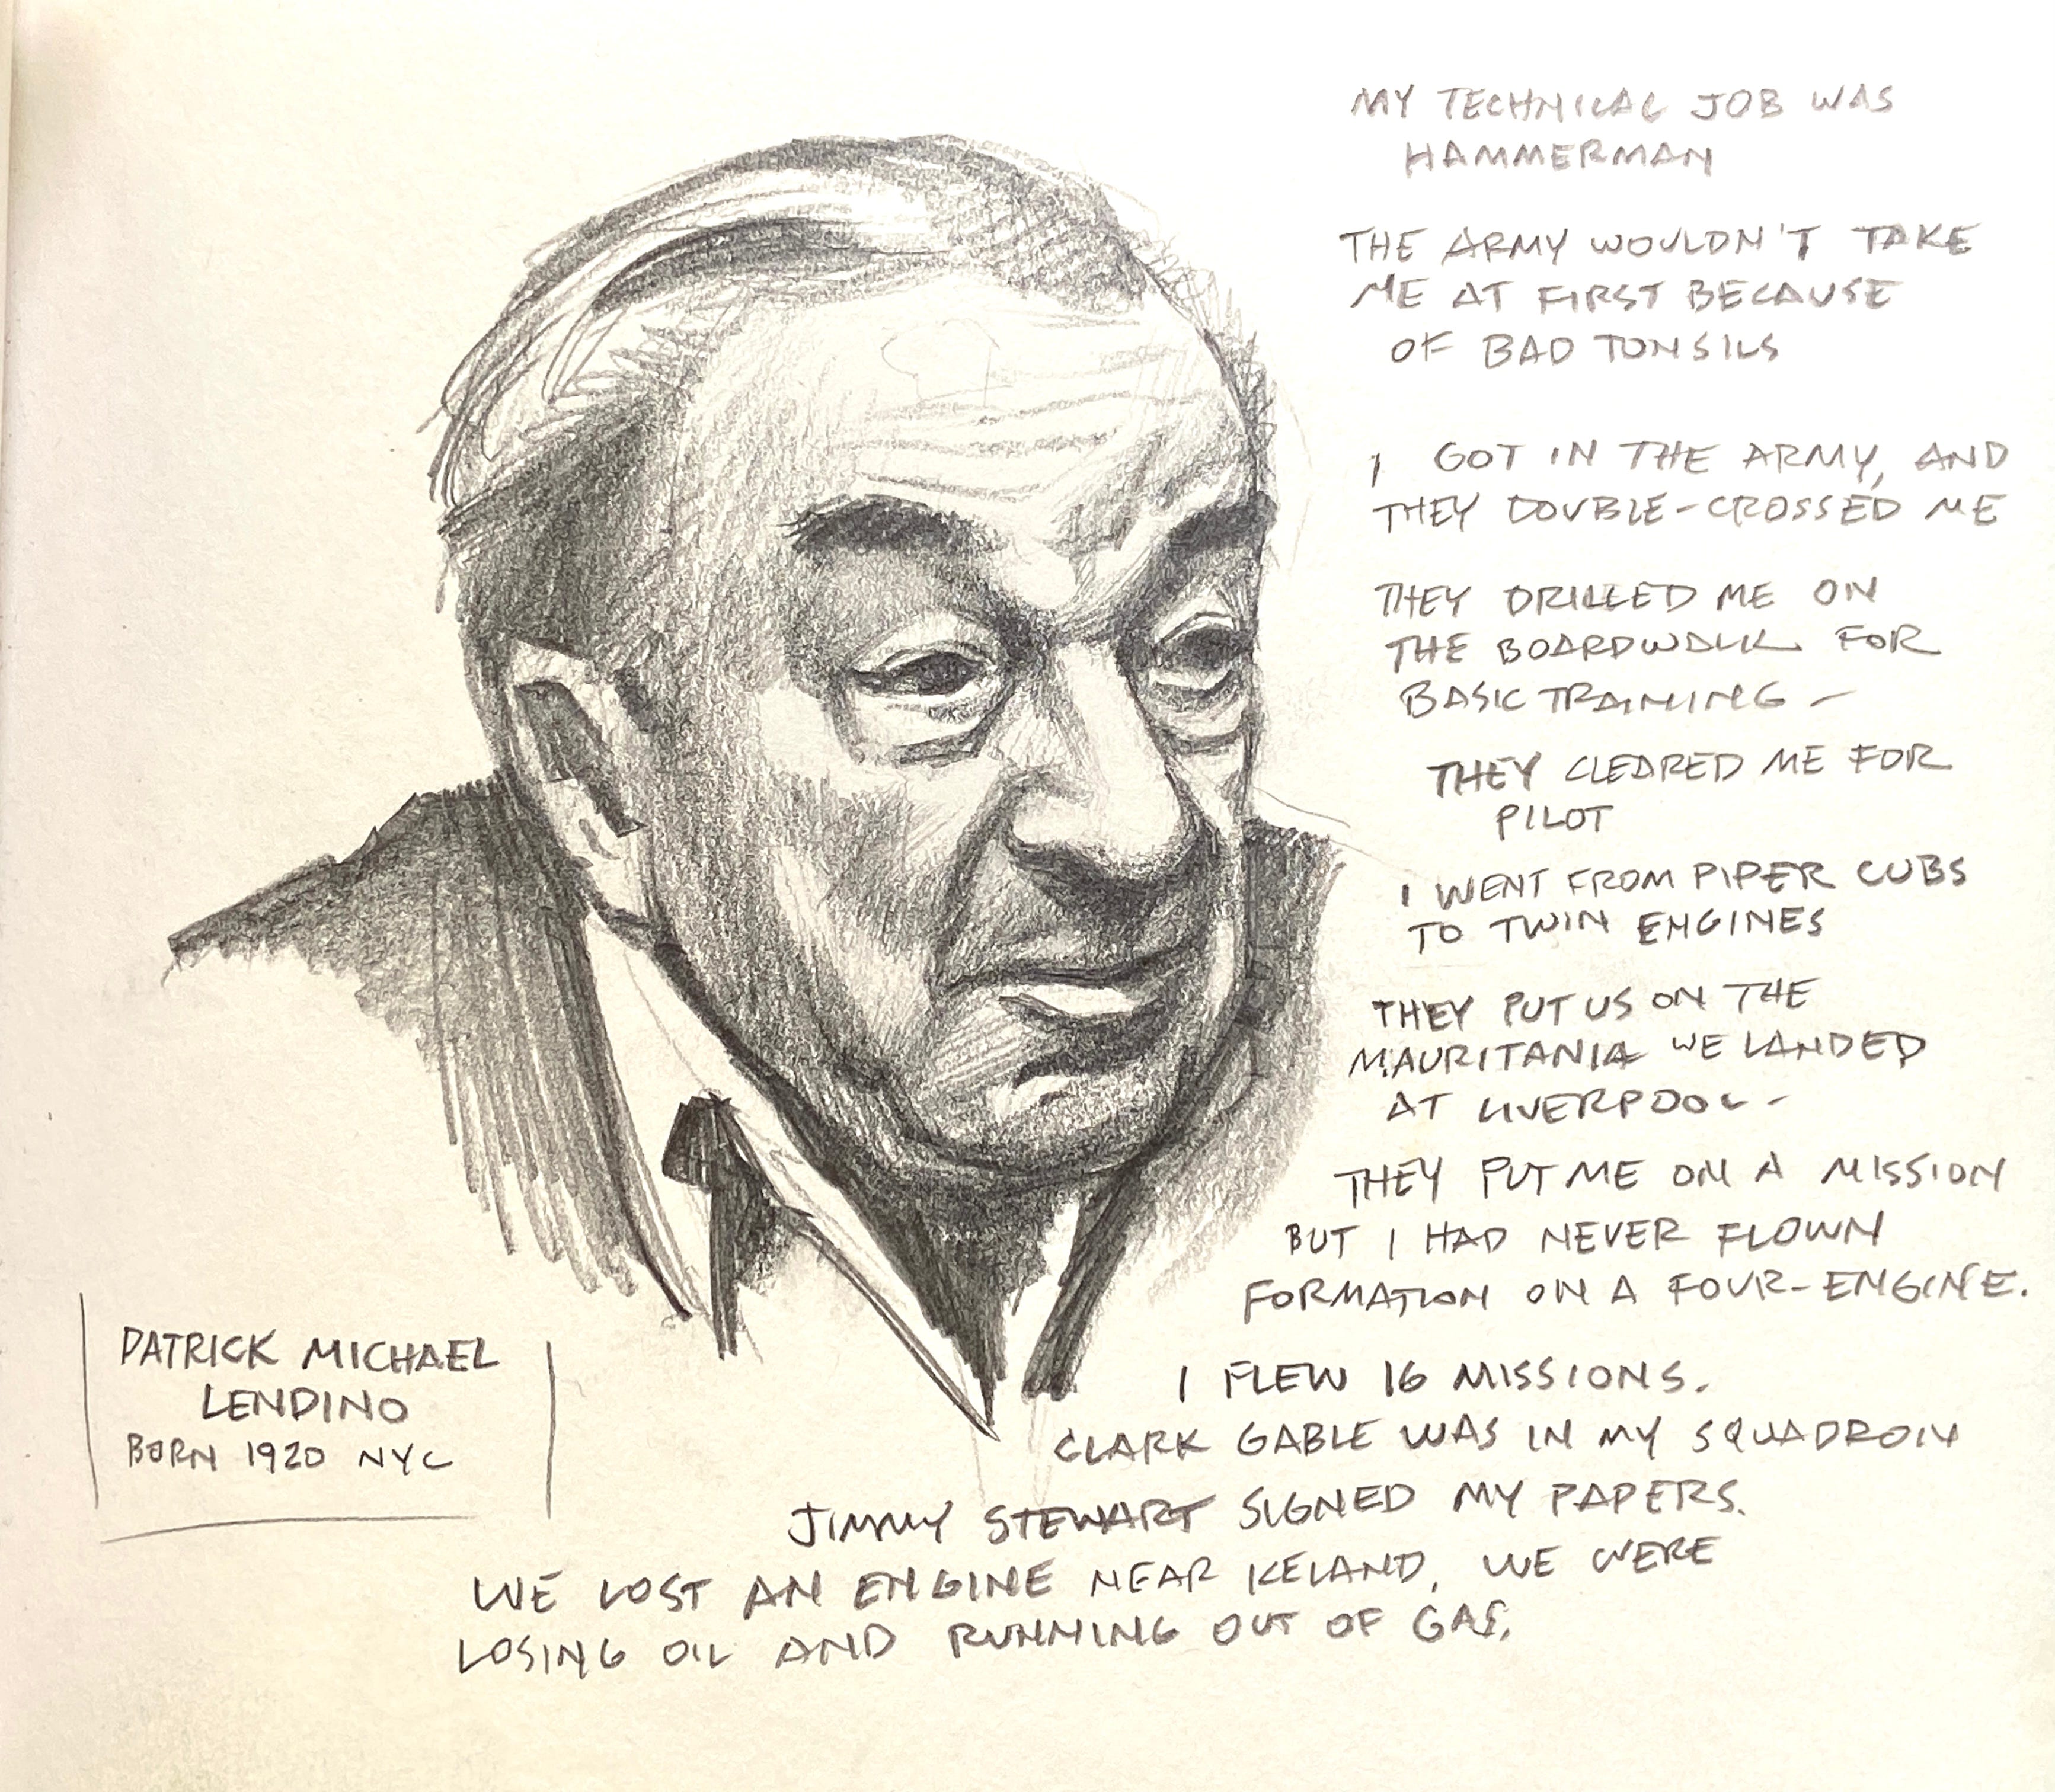 MY TECHNICAL JOB WAS
HAMMERMAN
THE ARMY WOULDN'T TAKE
ME AT FIRST BECAUSE
OF BAD TONSILS
I GOT IN THE ARMY, AND
THEY DOUBLE-CROSSED ME
THEY DRILLED ME ON
THE BOARDWALK FOR
BASIC TRAINING -
THEY CLEARED ME FOR
PILOT
I WENT FROM PIPER CUBS
TO TWIN ENGINES
THEY PUT US ON THE
MAURITANIA WE LANDED
AT LIVERPOOL -
THEY PUT ME ON A MISSION
BUT I HAD NEVER FLOWN
FORMATION ON A FOUR-ENGINE.
I FLEW 16 MISSIONS.
CLARK GABLE WAS IN MY SQUADRON
JIMMY STEWART SIGNED MY PAPERS.
WE LOST AN ENGINE NEAR ICELAND, WE WERE
LOSING OIL AND RUNNING OUT OF GAS.
PATRICK MICHAEL
LENDINO
BORN 1920 NYC